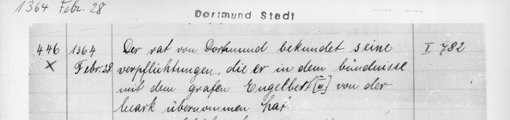 1364 Febr. 28
Dortmund Stadt
446 1364 Der rat von Dortmund bekundet seine I 782
× Febr. 28 verpflichtungen, die er in dem bündnisse
mit dem grafen Engelbert [III] von der
Mark übernommen hat